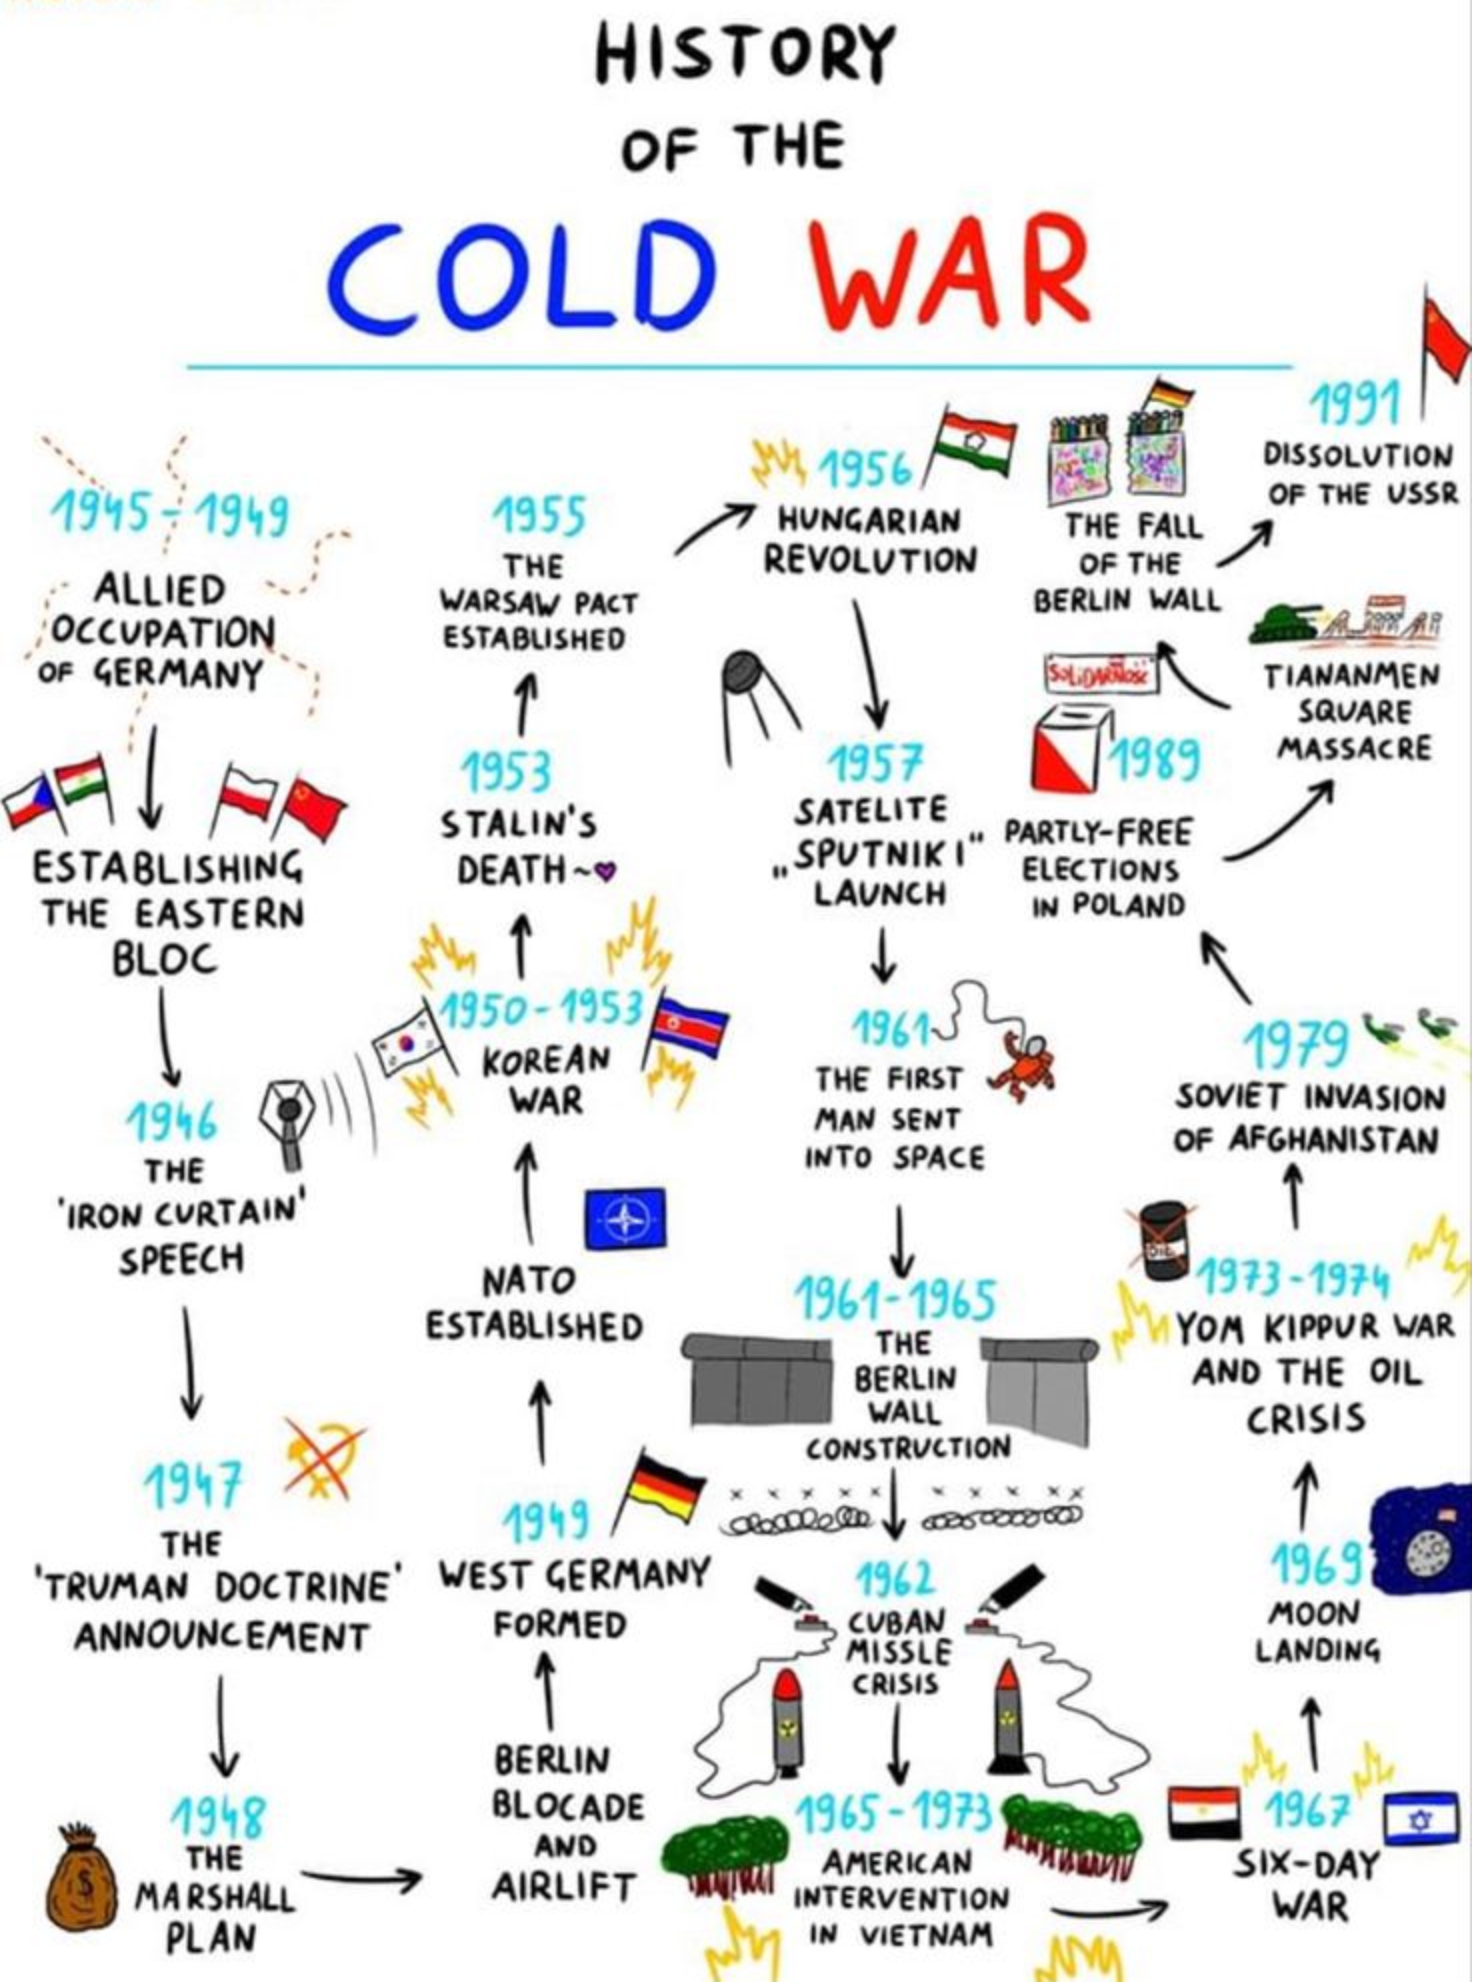 HISTORY
OF THE
COLD WAR
1945-1949
ALLIED
OCCUPATION
OF GERMANY
ESTABLISHING
THE EASTERN
BLOC
1946
THE
'IRON CURTAIN'
SPEECH
1947
THE
'TRUMAN DOCTRINE'
ANNOUNCEMENT
1948
THE
MARSHALL
PLAN
$
BERLIN
BLOCADE
AND
AIRLIFT
1949
WEST GERMANY
FORMED
NATO
ESTABLISHED
1950-1953
KOREAN
WAR
1953
STALIN'S
DEATH~
1955
THE
WARSAW PACT
ESTABLISHED
1956
HUNGARIAN
REVOLUTION
1957
SATELITE
„SPUTNIK I"
LAUNCH
1961
THE FIRST
MAN SENT
INTO SPACE
1961-1965
THE
BERLIN
WALL
CONSTRUCTION
1962
CUBAN
MISSLE
CRISIS
1965-1973
AMERICAN
INTERVENTION
IN VIETNAM
1967
SIX-DAY
WAR
1969
MOON
LANDING
OIL
1973-1974
YOM KIPPUR WAR
AND THE OIL
CRISIS
1979
SOVIET INVASION
OF AFGHANISTAN
SOLIDARNOŚĆ
1989
PARTLY-FREE
ELECTIONS
IN POLAND
TIANANMEN
SQUARE
MASSACRE
THE FALL
OF THE
BERLIN WALL
1991
DISSOLUTION
OF THE USSR